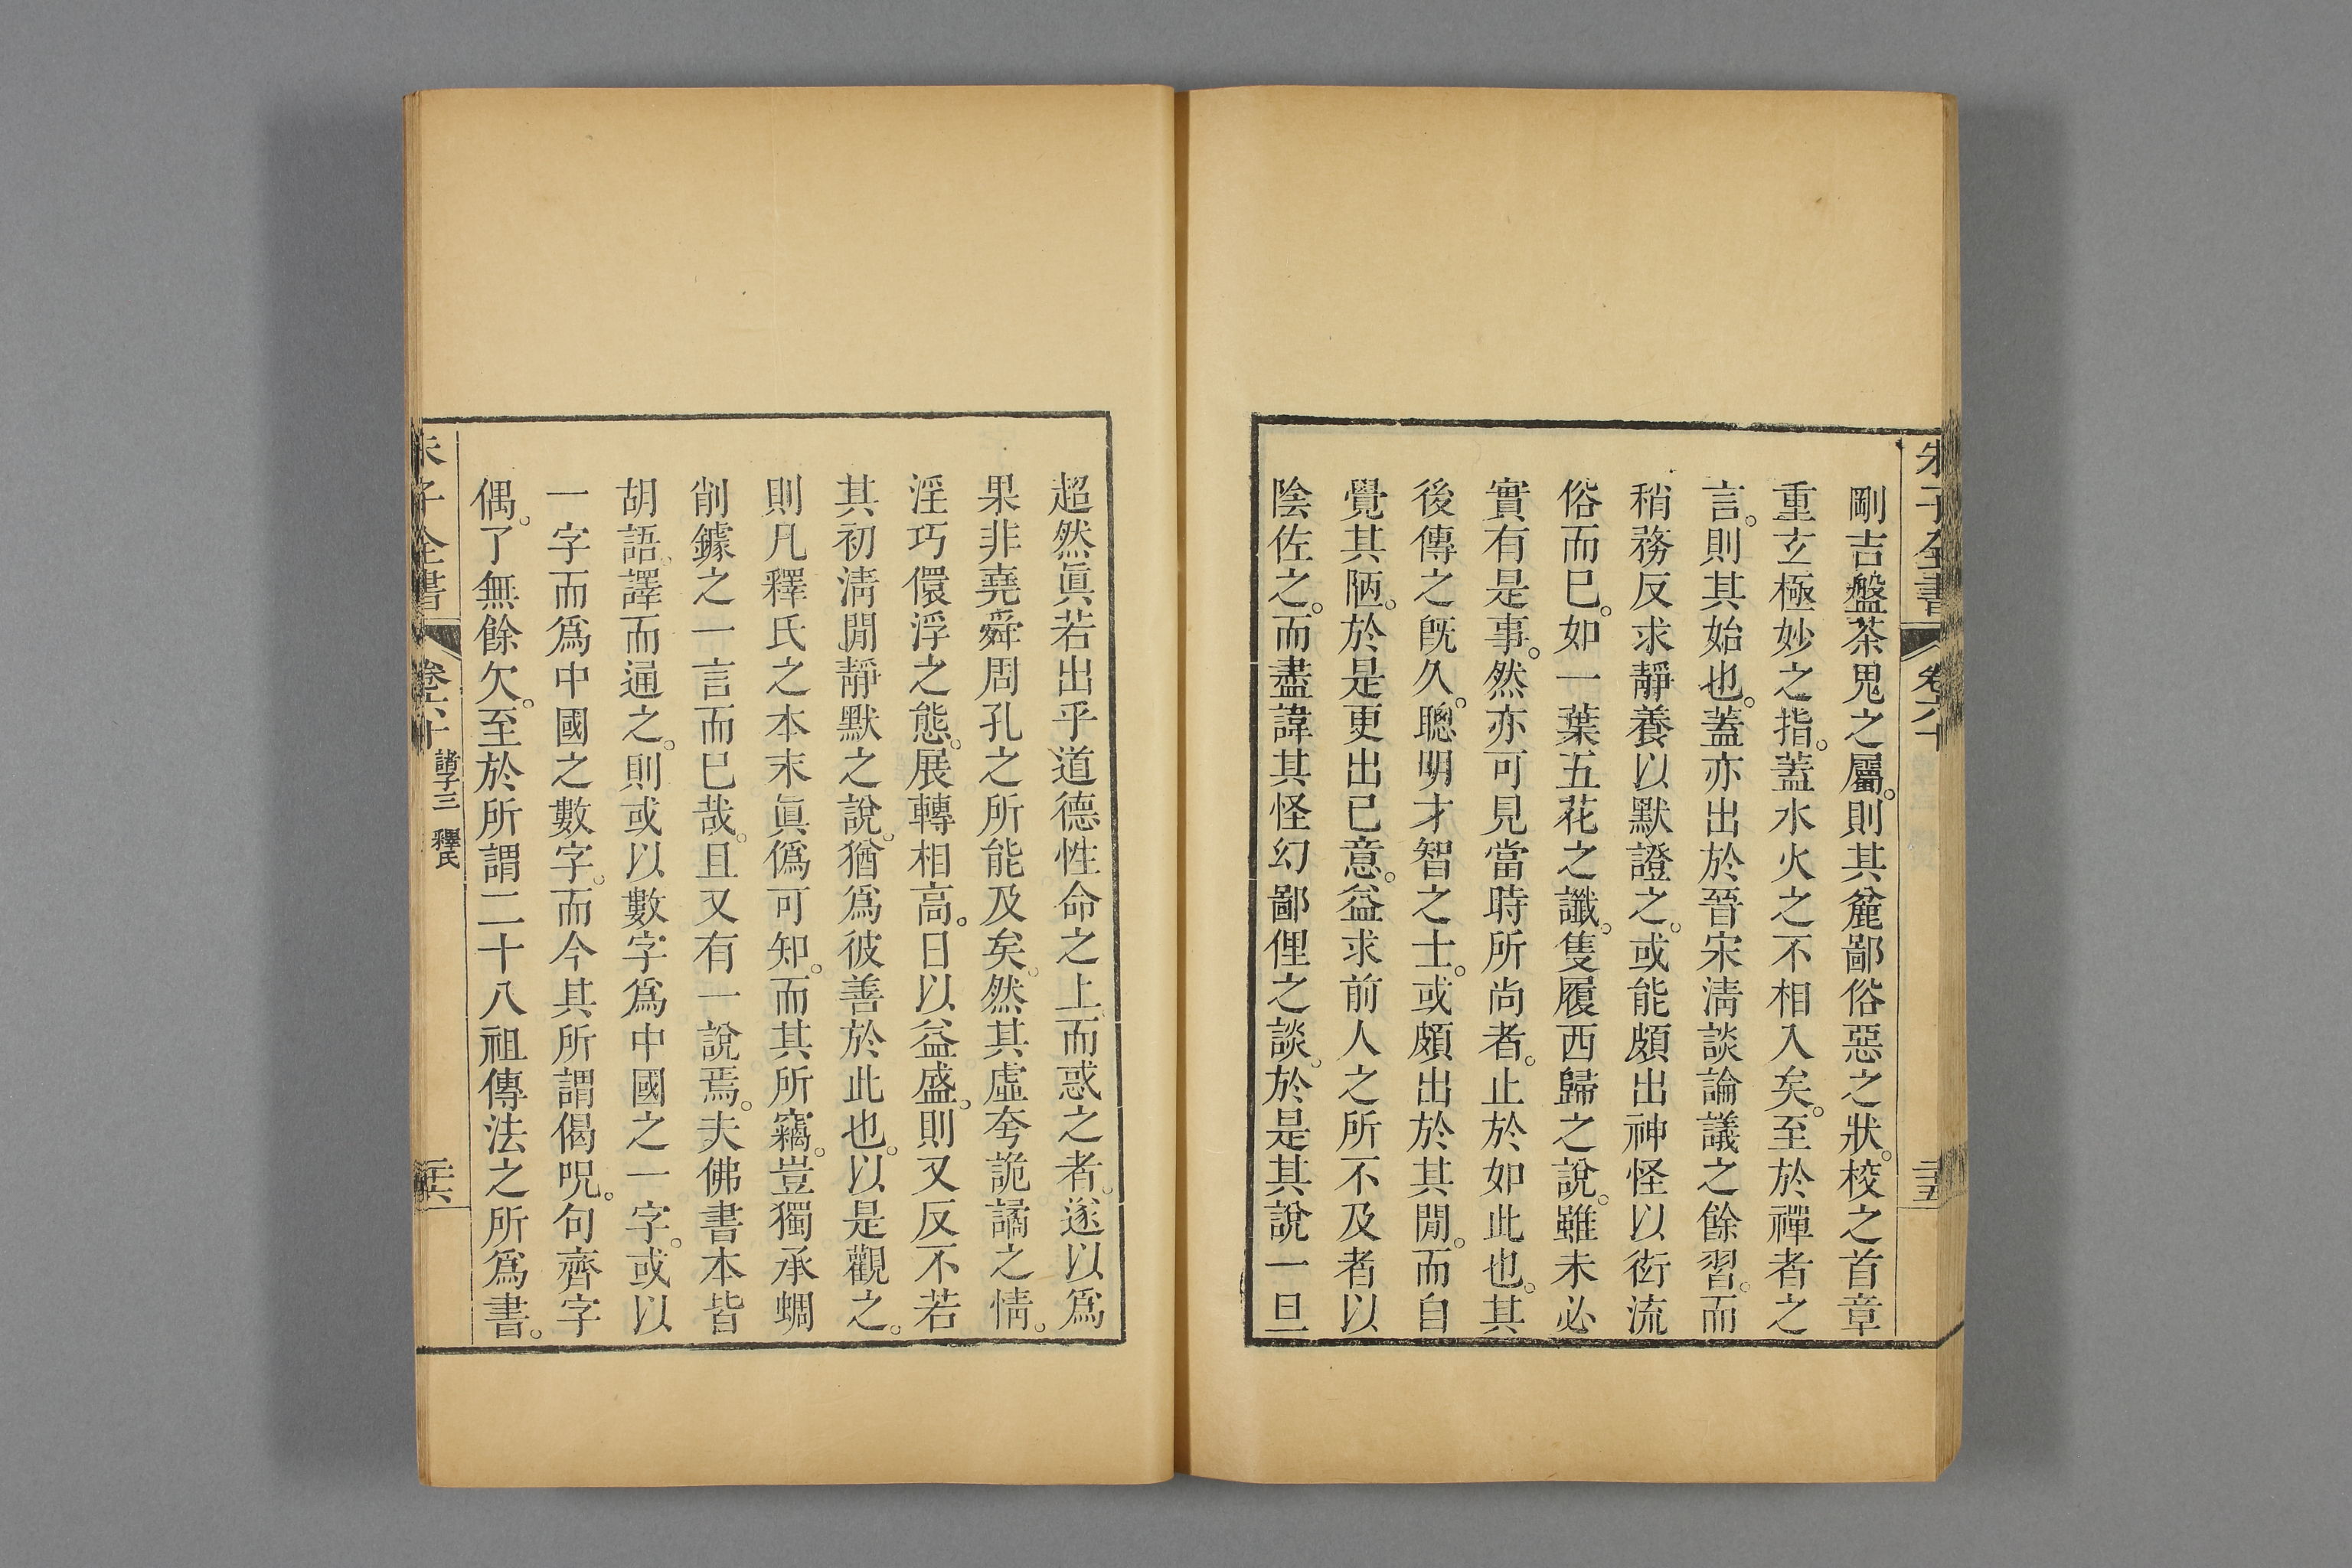 朱子全書 卷六十 二十五
剛吉盤茶鬼之屬。則其麄鄙俗惡之狀。校之首章
重玄極妙之指。蓋水火之不相入矣。至於禪者之
言。則其始也。蓋亦出於晉宋清談論議之餘習。而
稍務反求靜養以默證之。或能頗出神怪以衒流
俗而已。如一葉五花之讖。隻履西歸之說。雖未必
實有是事。然亦可見當時所尚者。止於如此也。其
後傳之既久。聰明才智之士。或頗出於其閒。而自
覺其陋。於是更出己意。益求前人之所不及者以
陰佐之。而盡諱其怪幻鄙俚之談。於是其說一旦
超然眞若出乎道德性命之上。而惑之者。遂以爲
果非堯舜周孔之所能及矣。然其虛夸詭譎之情。
淫巧儇浮之態。展轉相高。日以益盛。則又反不若
其初淸閒靜默之說。猶爲彼善於此也。以是觀之。
則凡釋氏之本末眞僞可知。而其所竊。豈獨承蜩
削鐻之一言而已哉。且又有一說焉。夫佛書本皆
胡語。譯而通之。則或以數字爲中國之一字。或以
一字而爲中國之數字。而今其所謂偈呪。句齊字
偶。了無餘欠。至於所謂二十八祖傳法之所爲書。
朱子全書 卷六十 諸子三 釋氏 二十六